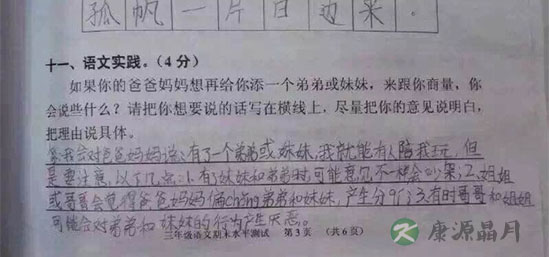 孤帆一片日边来.
十一、语文实践。(4分)
如果你的爸爸妈妈想再给你添一个弟弟或妹妹，来跟你商量，你
会说些什么？请把你想要说的话写在横线上，尽量把你的意见说明白，
把理由说具体。
我会对爸爸妈妈说：有了一个弟弟或妹妹，我就能有人陪我玩，但
是要注意，以下几点：1、有了妹妹和弟弟时可能意见不一样会吵架；2、姐姐
或哥哥会觉得爸爸妈妈偏心ing弟弟和妹妹，产生分歧；3、有时哥哥和姐姐
可能会对弟弟和妹妹的行为产生厌恶。
三年级语文期末水平测试 第3页 （共6页）
康源晶月